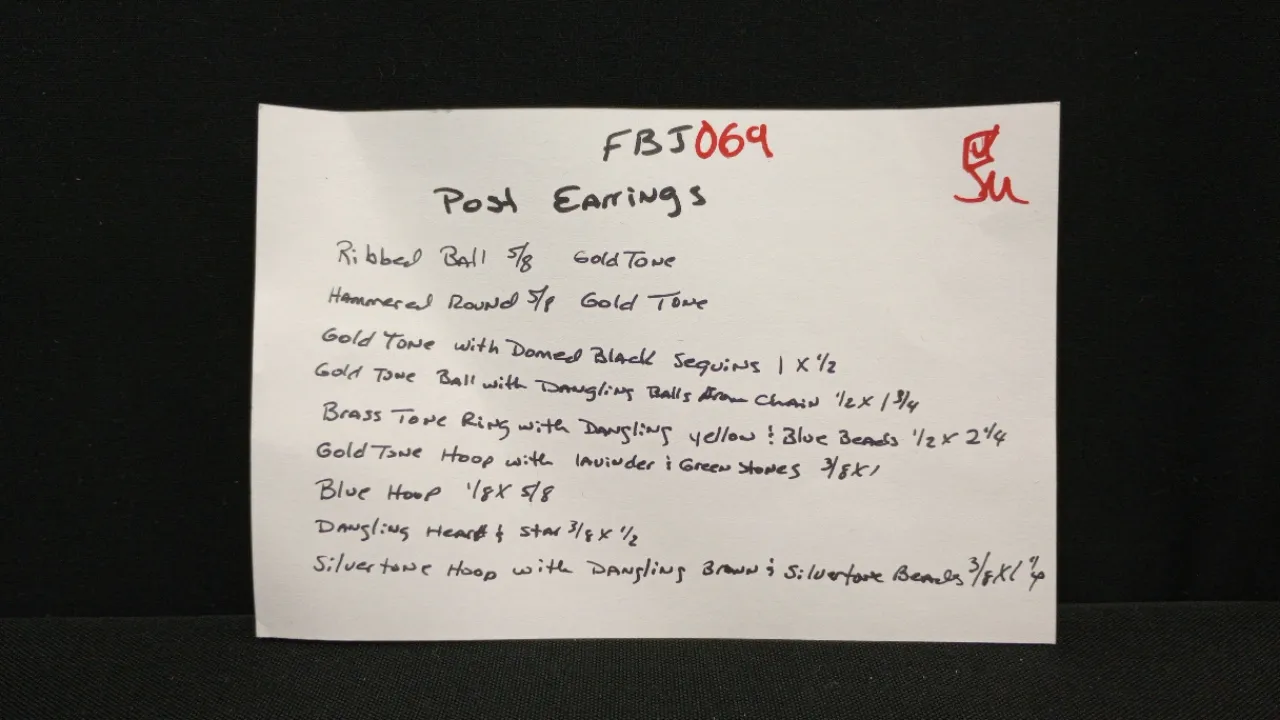 FBJ069
Post Earrings
Ribbed Ball 5/8 Gold Tone
Hammered Round 5/8 Gold Tone
Gold Tone with Domed Black Sequins 1 X 1/2
Gold Tone Ball with Dangling Balls from Chain 1/2 X 1 3/4
Brass Tone Ring with Dangling yellow & Blue Beads 1/2 X 2 1/4
Gold Tone Hoop with lavinder & Green Stones 3/8 X 1
Blue Hoop 1/8 X 5/8
Dangling Heart & Star 3/8 X 1/2
Silvertone Hoop with Dangling Brown & Silvertone Beads 3/8 X 1 1/4